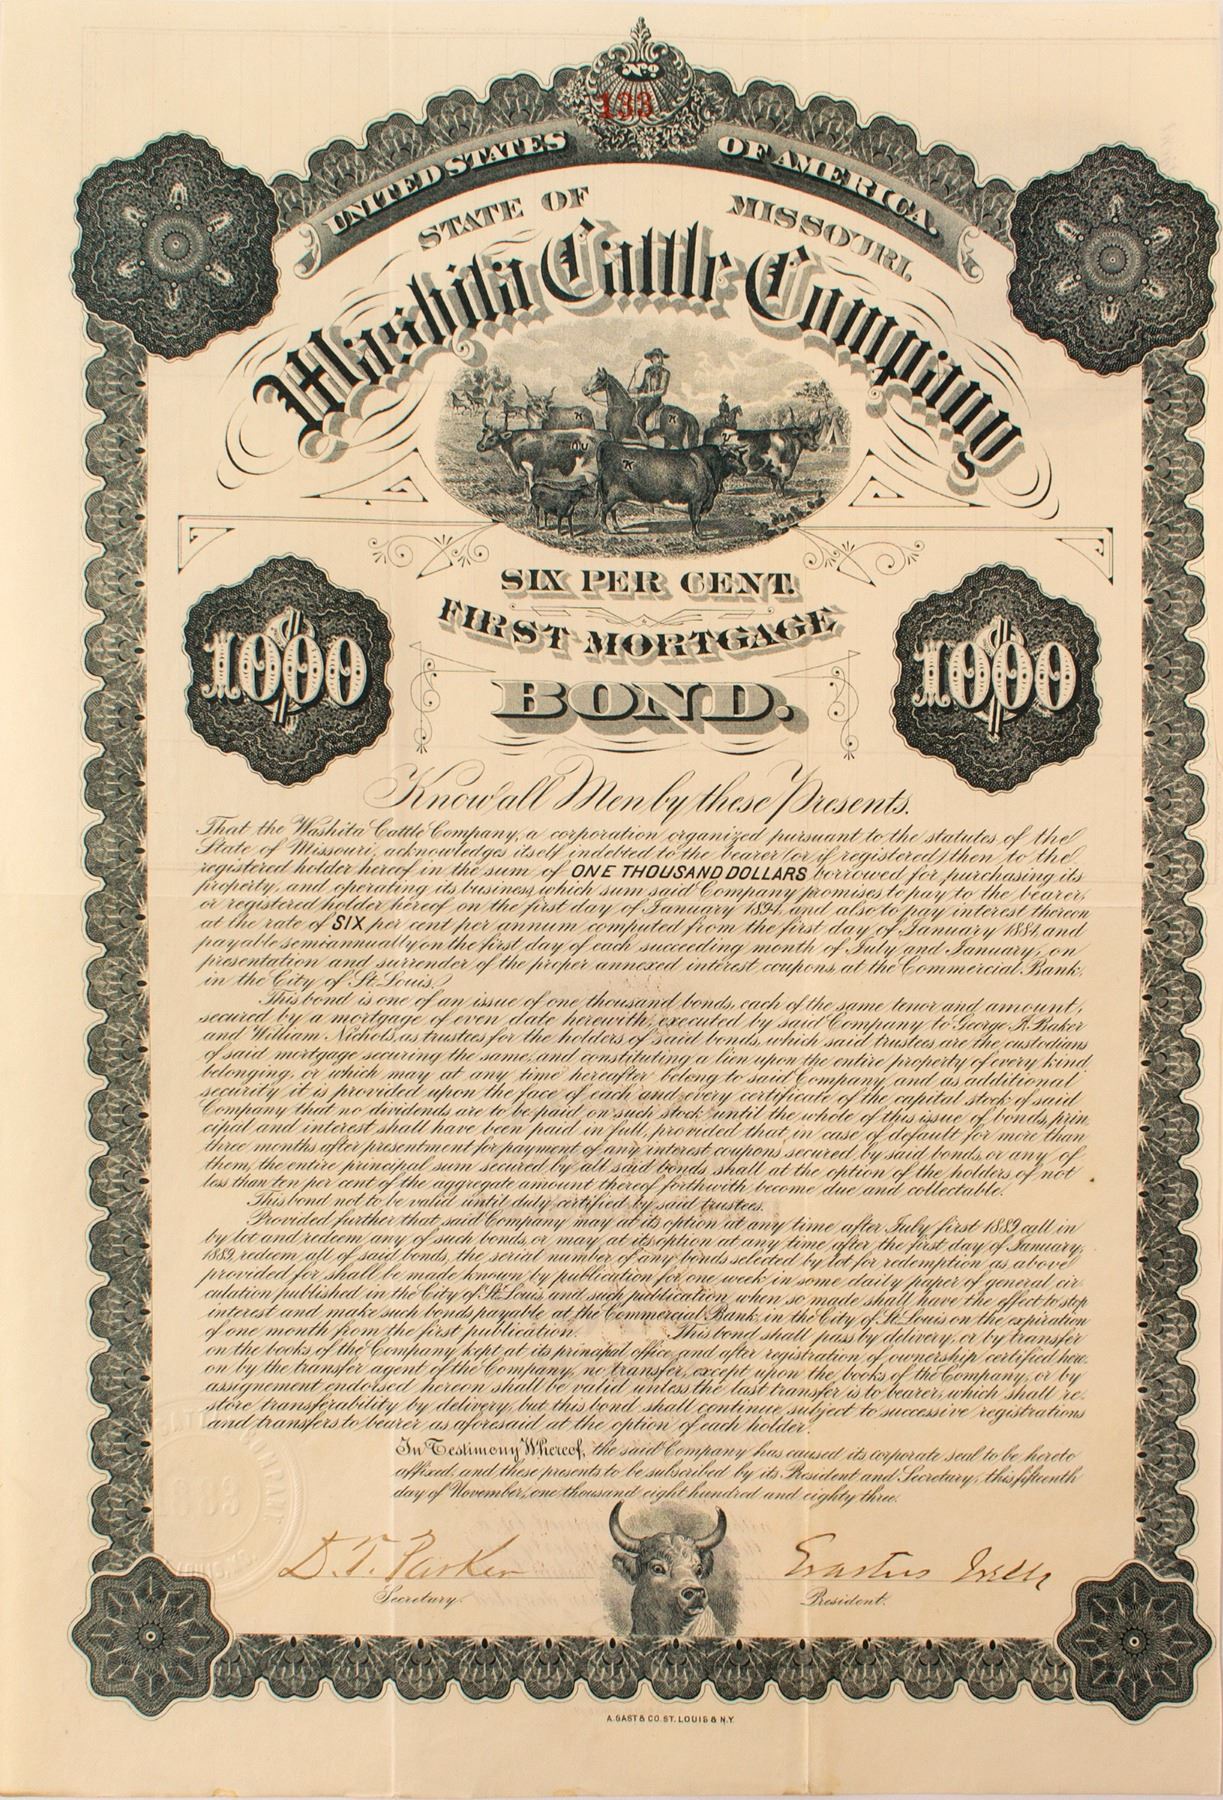 No
133
UNITED STATES OF AMERICA.
STATE OF MISSOURI.
Washita Cattle Company
SIX PER CENT.
FIRST MORTGAGE
1000
BOND.
1000
Know all Men by these Presents.
That the Washita Cattle Company, a corporation organized pursuant to the statutes of the
State of Missouri, acknowledges itself indebted to the bearer (or if registered) then to the
registered holder hereof in the sum of ONE THOUSAND DOLLARS borrowed for purchasing its
property, and operating its business, which sum said Company promises to pay to the bearer,
or registered holder hereof on the first day of January 1894, and also to pay interest thereon
at the rate of SIX per cent per annum computed from the first day of January 1884, and
payable semiannually on the first day of each succeeding month of July and January, on
presentation and surrender of the proper annexed interest coupons, at the Commercial Bank,
in the City of St. Louis.
This bond is one of an issue of one thousand bonds, each of the same tenor and amount,
secured by a mortgage of even date herewith, executed by said Company to George A. Baker
and William Nichols, as trustees for the holders of said bonds, which said trustees are the custodians
of said mortgage securing the same, and constituting a lien upon the entire property of every kind
belonging, or which may at any time hereafter belong to said Company, and as additional
security it is provided upon the face of each and every certificate of the capital stock of said
Company that no dividends are to be paid on such stock until the whole of this issue of bonds, prin
cipal and interest shall have been paid in full, provided that in case of default for more than
three months after presentment for payment of any interest coupons secured by said bonds, or any of
them, the entire principal sum secured by all said bonds shall at the option of the holders of not
less than ten per cent of the aggregate amount thereof forthwith become due and collectable.
This bond not to be valid until duly certified by said trustees.
Provided further that said Company may at its option at any time after July first 1889 call in
by lot and redeem any of such bonds, or may at its option at any time after the first day of January,
1889, redeem all of said bonds, the serial number of any bonds selected by lot for redemption as above
provided for shall be made known by publication for one week in some daily paper of general cir-
culation published in the City of St. Louis, and such publication when so made shall have the effect to stop
interest and make such bonds payable at the Commercial Bank, in the City of St. Louis on the expiration
of one month from the first publication. This bond shall pass by delivery, or by transfer
on the books of the Company kept at its principal office, and after registration of ownership certified here-
on by the transfer agent of the Company, no transfer, except upon the books of the Company, or by
assignement endorsed hereon shall be valid unless the last transfer is to bearer, which shall re-
store transferability by delivery, but this bond shall continue subject to successive registrations
and transfers to bearer as aforesaid at the option of each holder.
In Testimony Whereof, the said Company has caused its corporate seal to be hereto
affixed, and these presents to be subscribed by its President and Secretary, this fifteenth
day of November, one thousand eight hundred and eighty three.
D. T. Parker
Secretary.
Erastus Wells
President.
A. GAST & CO. ST. LOUIS & N.Y.